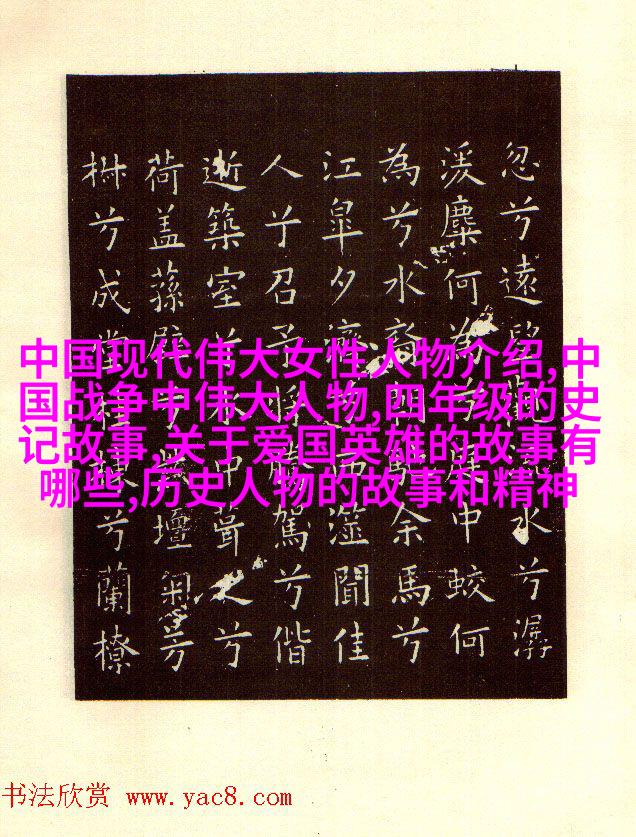 忽兮遠望流水兮潺
湲麋何為兮中蛟何
為兮水裔余馬兮
江皐夕濟西澨聞佳
人兮召予將騰駕兮偕
逝築室兮水中葺之兮
荷盖蓀壁兮壇芳
兮成堂桂棟兮蘭橑
中国现代伟大女性人物介绍,中
国战争中伟大人物,四年级的史
记故事,关于爱国英雄的故事有
哪些,历史人物的故事和精神
书法欣赏 www.yac8.com